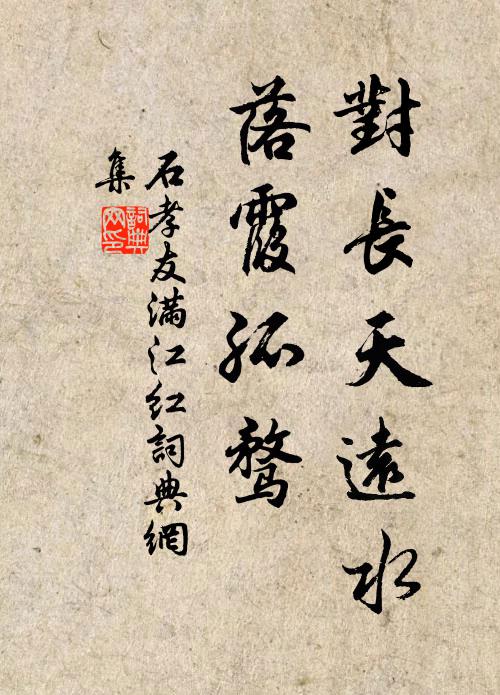 對長天遠水
落霞孤鶩
石孝友滿江紅詞典網
集
詞典
网印